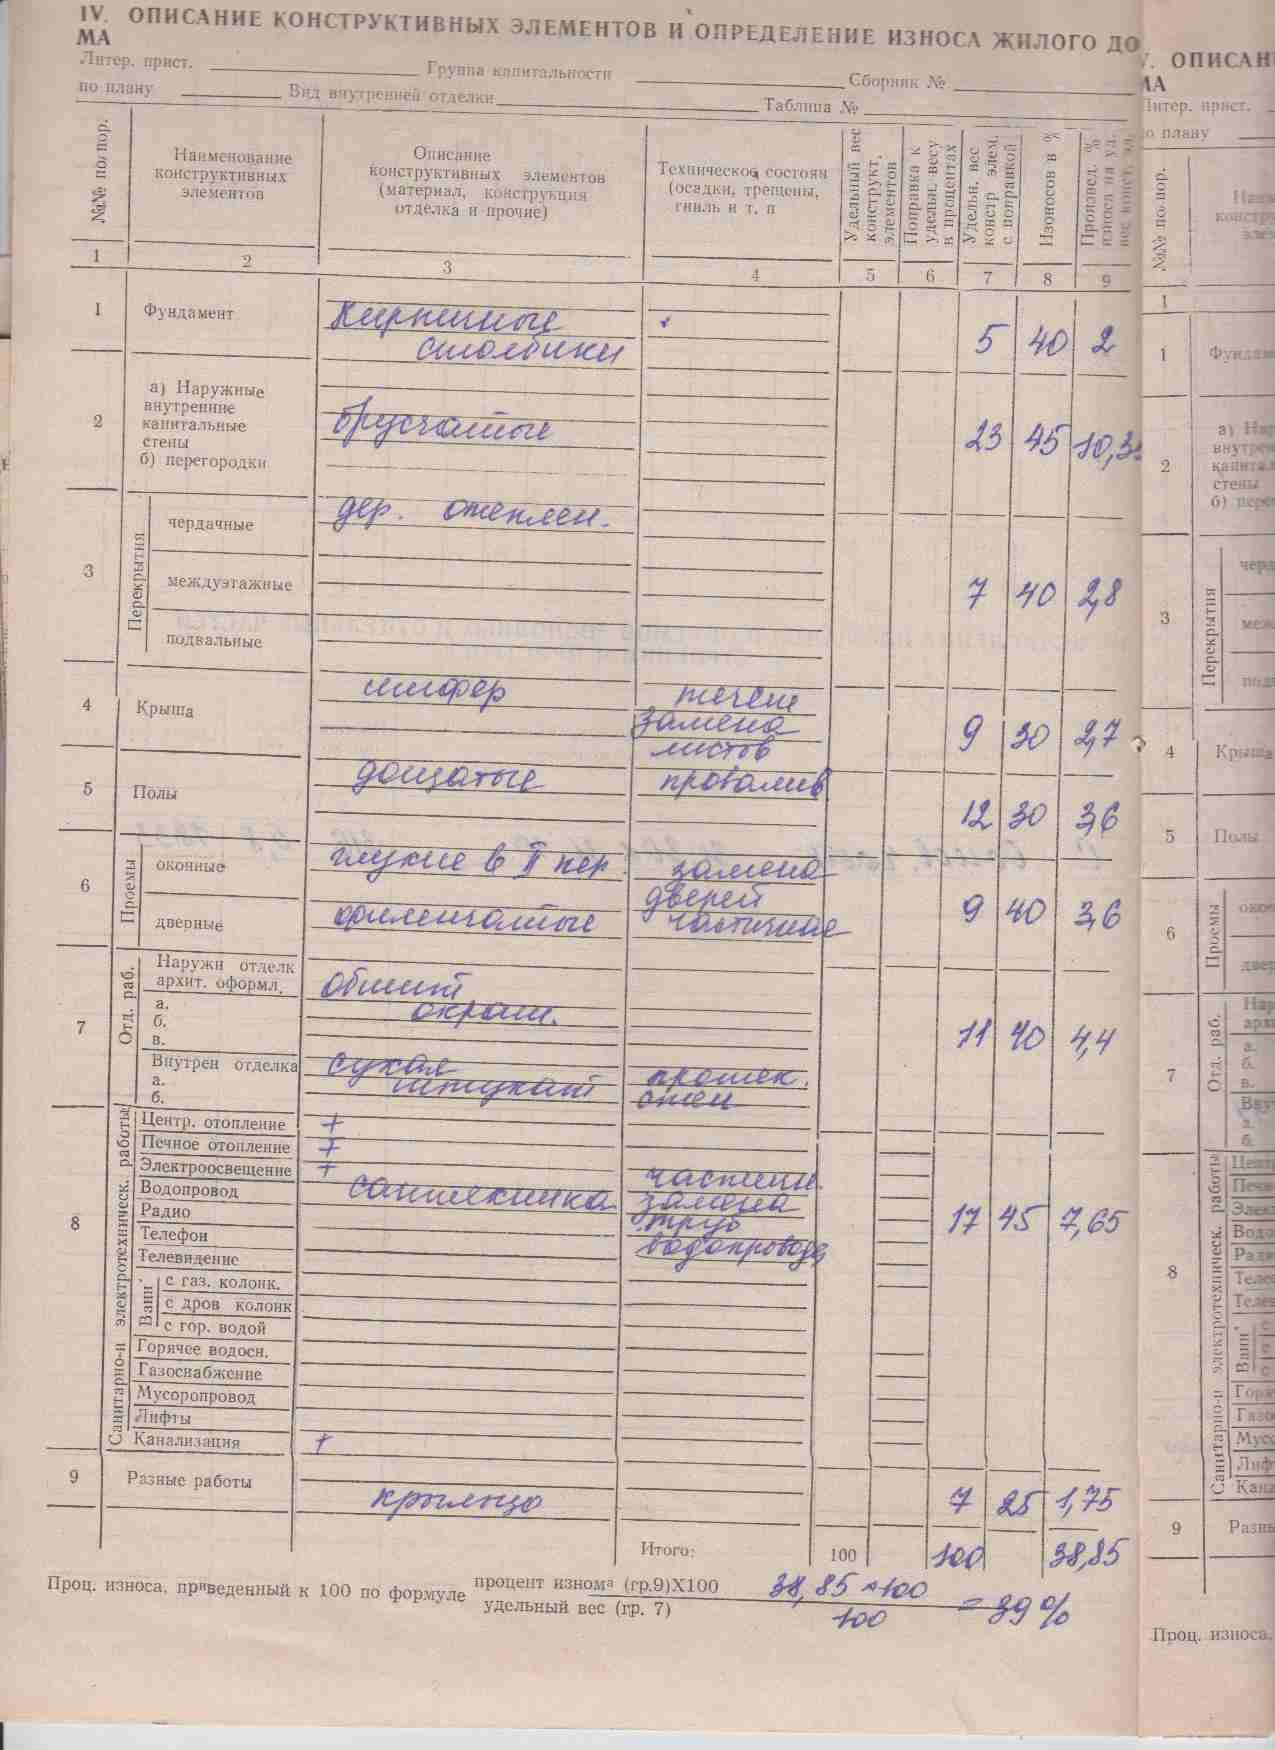 IV. ОПИСАНИЕ КОНСТРУКТИВНЫХ ЭЛЕМЕНТОВ И ОПРЕДЕЛЕНИЕ ИЗНОСА ЖИЛОГО ДО
МА
Литер. прист. Группа капитальности Сборник №
по плану Вид внутренней отделки Таблица №
№№ по пор. Наименование конструктивных элементов Описание конструктивных элементов (материал, конструкция отделка и прочие) Техническое состоян (осадки, трещены, гниль и т. п Удельный вес конструкт, элементов Поправка к удельн. весу в процентах Удельн. вес констр элем. с поправкой Изоносов в % Произвед. % износа на уд. вес конст. эл.
1 2 3 4 5 6 7 8 9
1 Фундамент Кирпичные столбики 5 40 2
2 а) Наружные внутренние капитальные стены б) перегородки брусчатые 23 45 10,35
3 Перекрытия
чердачные дер. отеплен.
междуэтажные 7 40 2,8
подвальные
4 Крыша шифер течет замена листов 9 30 2,7
5 Полы дощатые провалив 12 30 3,6
6 Проемы
оконные глухие в II пер. замена
дверные филенчатые дверей частичное 9 40 3,6
7 Отд. раб.
Наружн отделк архит. оформл. обшит
а. окраш.
б. 11 40 4,4
в.
Внутрен отделка сухая
а. штукат прошек.
б. стен
8 Санитарно-п электротехническ. работы
Центр. отопление +
Печное отопление +
Электроосвещение + частичн.
Водопровод сантехника замена
Радио труб 17 45 7,65
Телефон водопровода
Телевидение
Ванн
с газ. колонк.
с дров колонк
с гор. водой
Горячее водосн.
Газоснабжение
Мусоропровод
Лифты
Канализация +
9 Разные работы крыльцо 7 25 1,75
Итого: 100 100 38,85
Проц. износа, приведенный к 100 по формуле процент износа (гр.9)X100 38,85 × 100 = 39%
удельный вес (гр. 7) 100
V. ОПИСАН
МА
Литер. прист.
по плану
№№ по пор.
1
1 Фундам
2 а) Нар
внутрен
капитал
стены
б) пере
3 Перекрытия
черд
меж
под
4 Крыша
5 Полы
6 Проемы
окон
двер
7 Отд. раб.
Нар
архи
а.
б.
в.
Вну
а.
б.
8 Санитарно-п электротехническ. работы
Цент
Печн
Элек
Водо
Ради
Теле
Теле
Ванн
с
с
с
Горя
Газо
Мус
Лиф
Кана
9 Разн
Проц. износа,